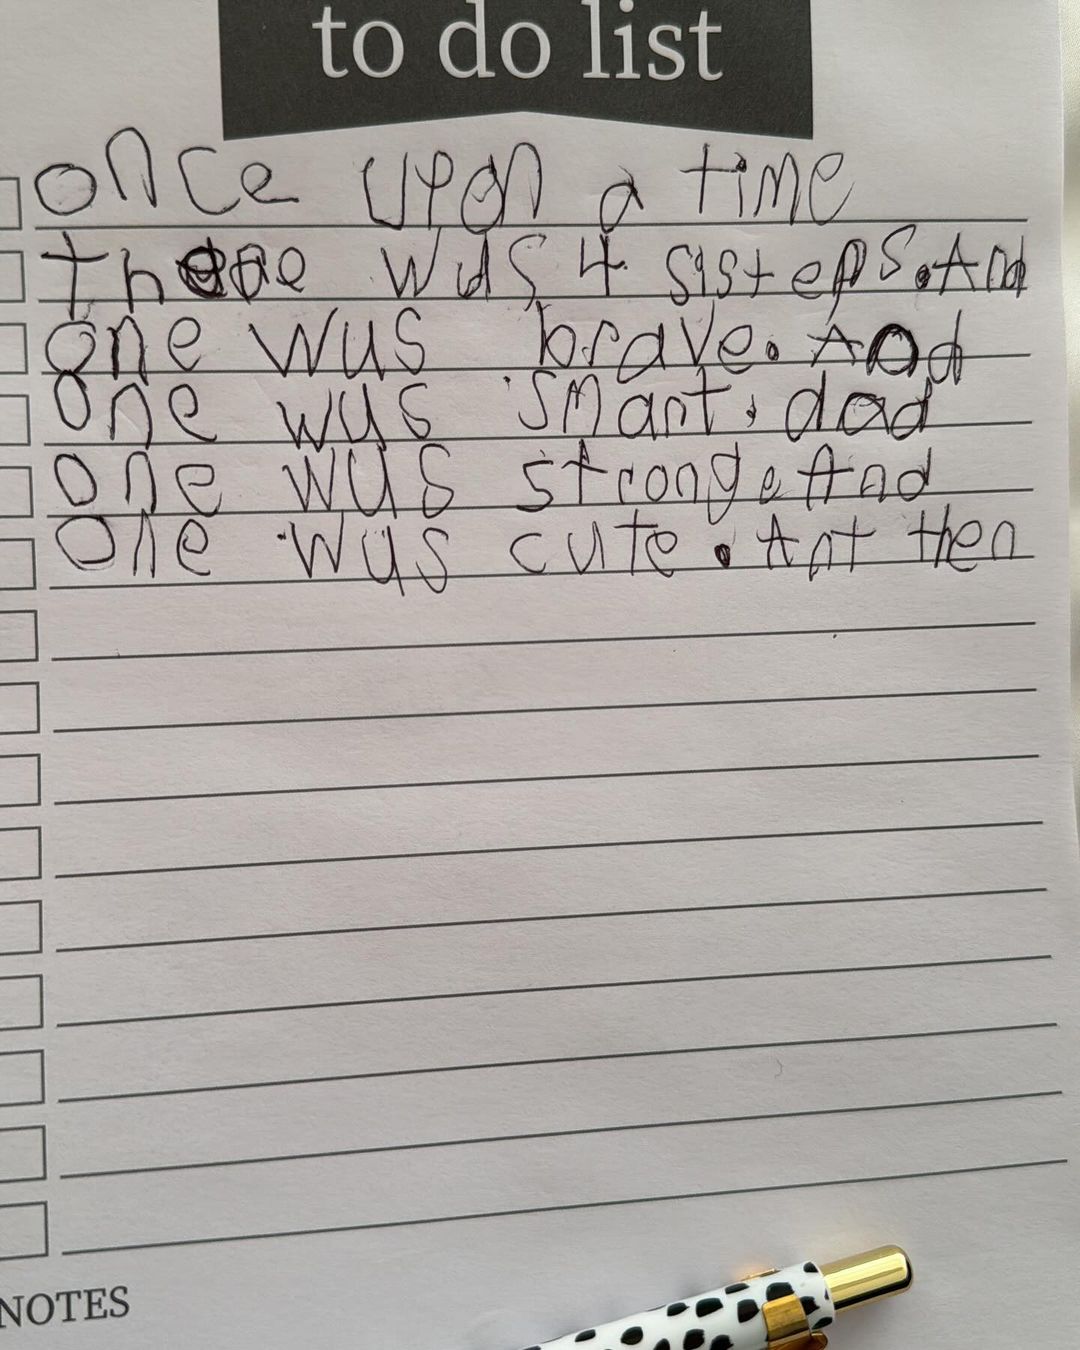 to do list
once upon a time
there wus 4 sisters. And
one wus brave. And
one wus smart. dad
one wus strong. And
one wus cute. Ant then
NOTES